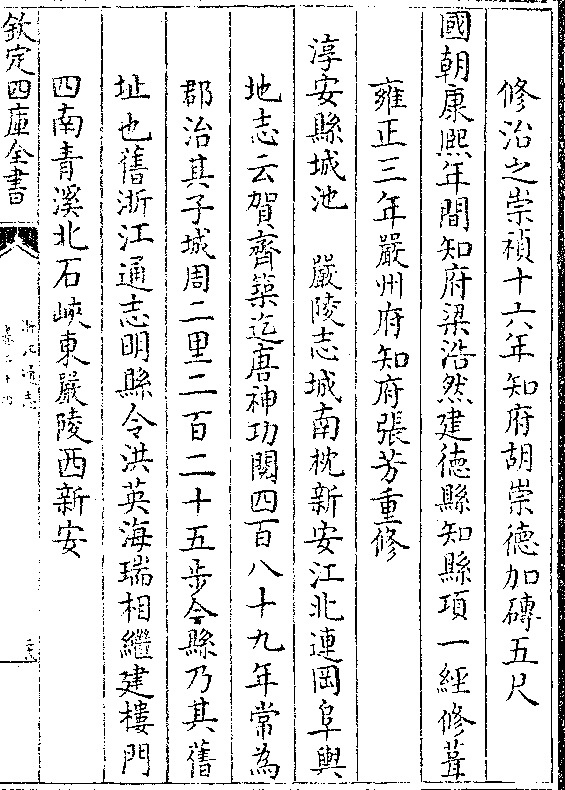 修治之崇禎十六年知府胡崇德加磚五尺
國朝康熙年間知府梁浩然建德縣知縣項一經修葺
雍正三年嚴州府知府張芳重修
淳安縣城池　嚴陵志城南枕新安江北連岡阜輿
地志云賀齊築迄唐神功閱四百八十九年常為
郡治其子城周二里二百二十五步今縣乃其舊
址也舊浙江通志明縣令洪英海瑞相繼建樓門
四南青溪北石峽東嚴陵西新安
欽定四庫全書
浙江通志